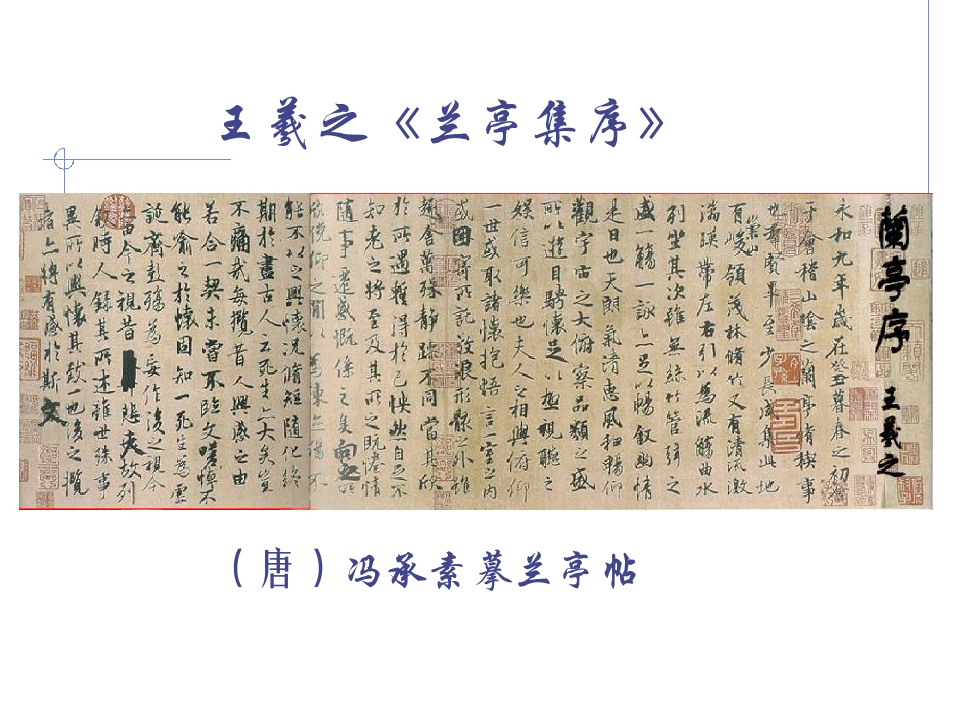 王羲之《兰亭集序》
蘭亭序 王羲之
永和九年歲在癸丑暮春之初會
于會稽山陰之蘭亭脩禊事
也羣賢畢至少長咸集此地
有崇山峻領茂林脩竹又有清流激
湍暎帶左右引以為流觴曲水
列坐其次雖無絲竹管弦之
盛一觴一詠亦足以暢叙幽情
是日也天朗氣清惠風和暢仰
觀宇宙之大俯察品類之盛
所以遊目騁懷足以極視聽之
娛信可樂也夫人之相與俯仰
一世或取諸懷抱悟言一室之內
或因寄所託放浪形骸之外雖
趣舍萬殊靜躁不同當其欣
於所遇蹔得於己怏然自足不
知老之將至及其所之既惓情
隨事遷感慨係之矣向之所
欣俛仰之閒以為陳迹猶不
能不以之興懷況脩短隨化終
期於盡古人云死生亦大矣豈
不痛哉每攬昔人興感之由
若合一契未嘗不臨文嗟悼不
能喻之於懷固知一死生為虛
誕齊彭殤為妄作後之視今
亦由今之視昔悲夫故列
敘時人錄其所述雖世殊事
異所以興懷其致一也後之攬
者亦將有感於斯文
（唐）冯承素摹兰亭帖